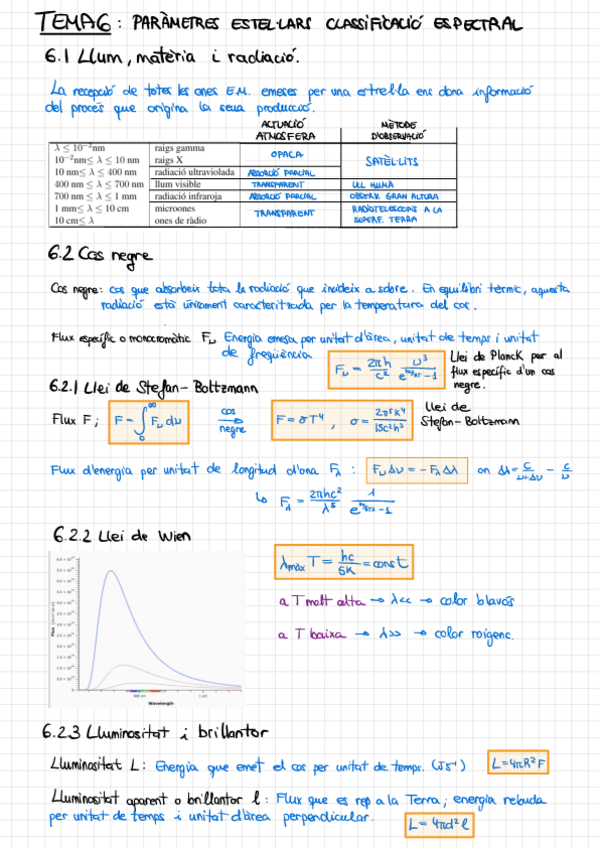 TEMA 6 : PARÀMETRES ESTEL·LARS CLASSIFICACIÓ ESPECTRAL
6.1 Llum, matèria i radiació.
La recepció de totes les ones E.M. emeses per una estrel·la ens dona informació
del procés que origina la seua producció.
ACTUACIÓ ATMOSFERA MÈTODE D'OBSERVACIÓ
λ ≤ 10⁻²nm raigs gamma OPACA SATÈL·LITS
10⁻²nm≤ λ ≤ 10 nm raigs X
10 nm≤ λ ≤ 400 nm radiació ultraviolada ABSORCIÓ PARCIAL
400 nm ≤ λ ≤ 700 nm llum visible TRANSPARENT ULL HUMÀ
700 nm≤ λ ≤ 1 mm radiació infraroja ABSORCIÓ PARCIAL OBSERV. GRAN ALTURA
1 mm≤ λ ≤ 10 cm microones TRANSPARENT RADIOTELESCOPIS A LA
10 cm≤ λ ones de ràdio SUPERF. TERRA
6.2 Cos negre
Cos negre: cos que absorbeix tota la radiació que incideix a sobre. En equilibri tèrmic, aquesta
radiació està únicament caracteritzada per la temperatura del cos.
Flux específic o monocromàtic Fν Energia emesa per unitat d'àrea, unitat de temps i unitat
de freqüència
Fν = 2πh/c² ν³/(e^(hν/kT) - 1) Llei de Planck per al
flux específic d'un cos
negre.
6.2.1 Llei de Stefan-Boltzmann
Flux F; F = ∫₀^∞ Fν dν cos negre → F = σT⁴ , σ = 2π⁵k⁴/15c²h³ Llei de
Stefan-Boltzmann
Flux d'energia per unitat de longitud d'ona Fλ : FνΔν = -FλΔλ on Δλ = c/(ν+Δν) - c/ν
↳ Fλ = 2πhc²/λ⁵ 1/(e^(hc/λkT) - 1)
6.2.2 Llei de Wien
λmàx T = hc/5k = const
a T molt alta → λ<< → color blavós
a T baixa → λ>> → color rogenc.
Flux
500 nm 1 μm
Wavelength
6.2.3 Lluminositat i brillantor
Lluminositat L: Energia que emet el cos per unitat de temps. (Js⁻¹) L=4πR²F
Lluminositat aparent o brillantor l: Flux que es rep a la Terra; energia rebuda
per unitat de temps i unitat d'àrea perpendicular. L = 4πd²l